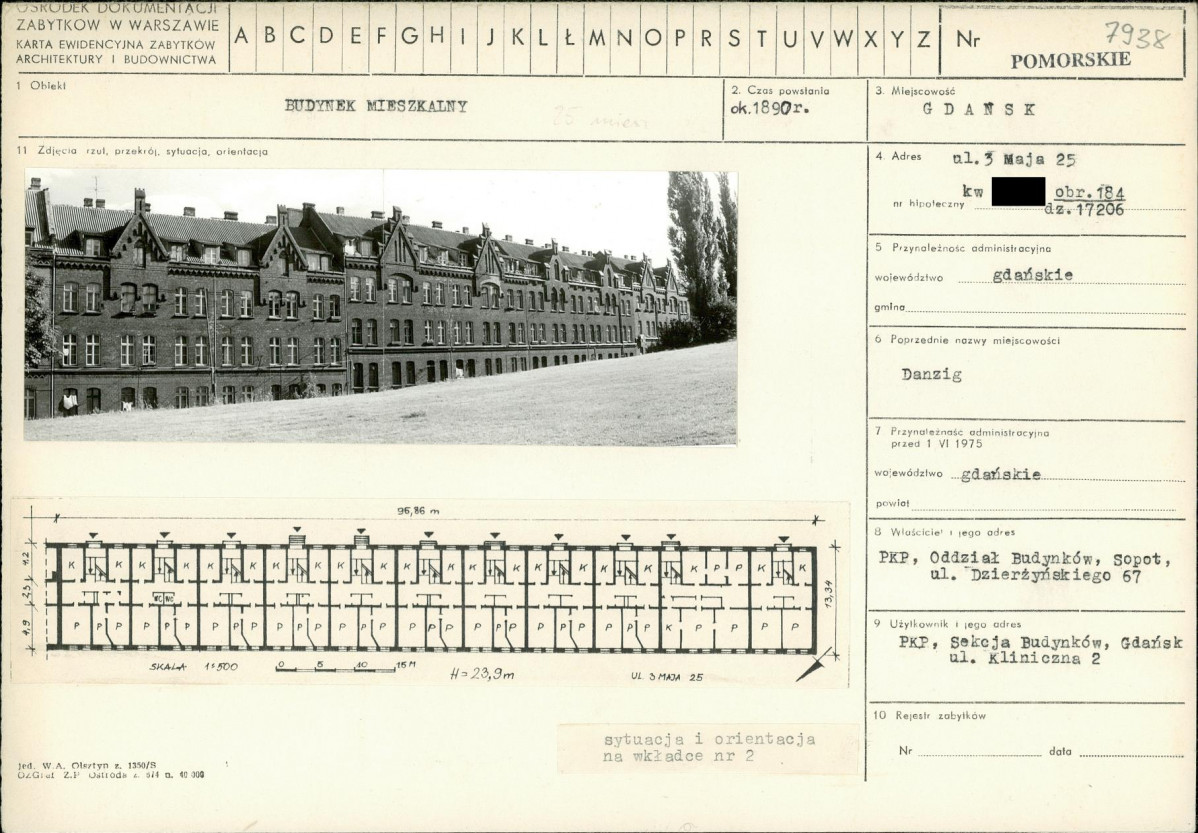 OŚRODEK DOKUMENTACJI
ZABYTKÓW W WARSZAWIE
KARTA EWIDENCYJNA ZABYTKÓW
ARCHITEKTURY I BUDOWNICTWA
A B C D E F G H I J K L Ł M N O P R S T U V W X Y Z
Nr 7938
POMORSKIE
1 Obiekt
BUDYNEK MIESZKALNY
2. Czas powstania
ok.1890r.
3. Miejscowość
GDAŃSK
11 Zdjęcia rzut, przekrój, sytuacja, orientacja
4. Adres ul.3 Maja 25
kw obr.184
nr hipoteczny dz.17206
5 Przynależność administracyjna
województwo gdańskie
gmina
6 Poprzednie nazwy miejscowości
Danzig
7 Przynależność administracyjna
przed 1 VI 1975
województwo gdańskie
powiat
8 Właściciel i jego adres
PKP, Oddział Budynków, Sopot,
ul. Dzierżyńskiego 67
9 Użytkownik i jego adres
PKP, Sekcja Budynków, Gdańsk
ul. Kliniczna 2
10 Rejestr zabytków
Nr data
96,86 m
4,2
4,9
13,34
K K K K K K K K K K K K K K K K K K K P P K K
WC WC
P P P P P P P P P P P P P P P P P P P P P P P P P P P K P P P P P
SKALA 1:500
0 5 10 15 M
H=23,9m
UL. 3 MAJA 25
sytuacja i orientacja
na wkładce nr 2
Jed. W.A. Olsztyn z. 1350/S
OZGraf Z.P Ostróda z. 674 n. 40 000